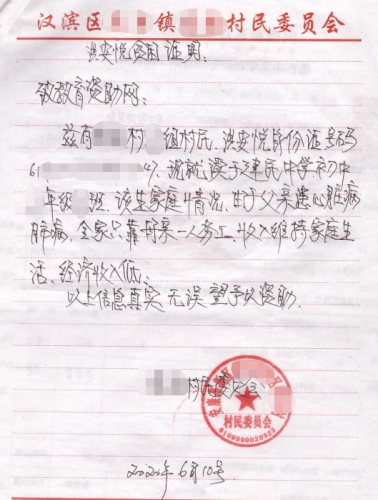 汉滨区 镇 村民委员会
洪安悦贫困证明:
致教育资助网:
兹有 村 组村民,洪安悦身份证号码
61 47,现就读于建民中学初中
年级 班,该生家庭情况,由于父亲患心脏病
肺病,全家只靠母亲一人务工,收入维持家庭生
活,经济收入低。
以上信息真实无误望予以资助.
村民委员会
村民委员会
6109990020923
2022年6月10号